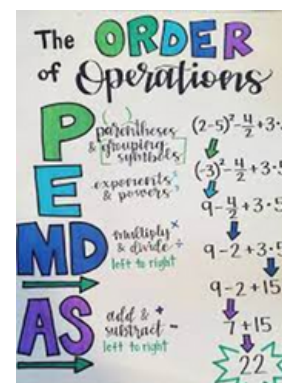 The ORDER
of Operations
P
( )
parentheses
& grouping
symbols
E
exponents
& powers
MD
multiply ×
& divide ÷
left to right
AS
add & +
subtract -
left to right
(2-5)²-4/2+3·
(-3)²-4/2+3·5
9-4/2+3·5
9-2+3·5
9-2+15
7+15
22